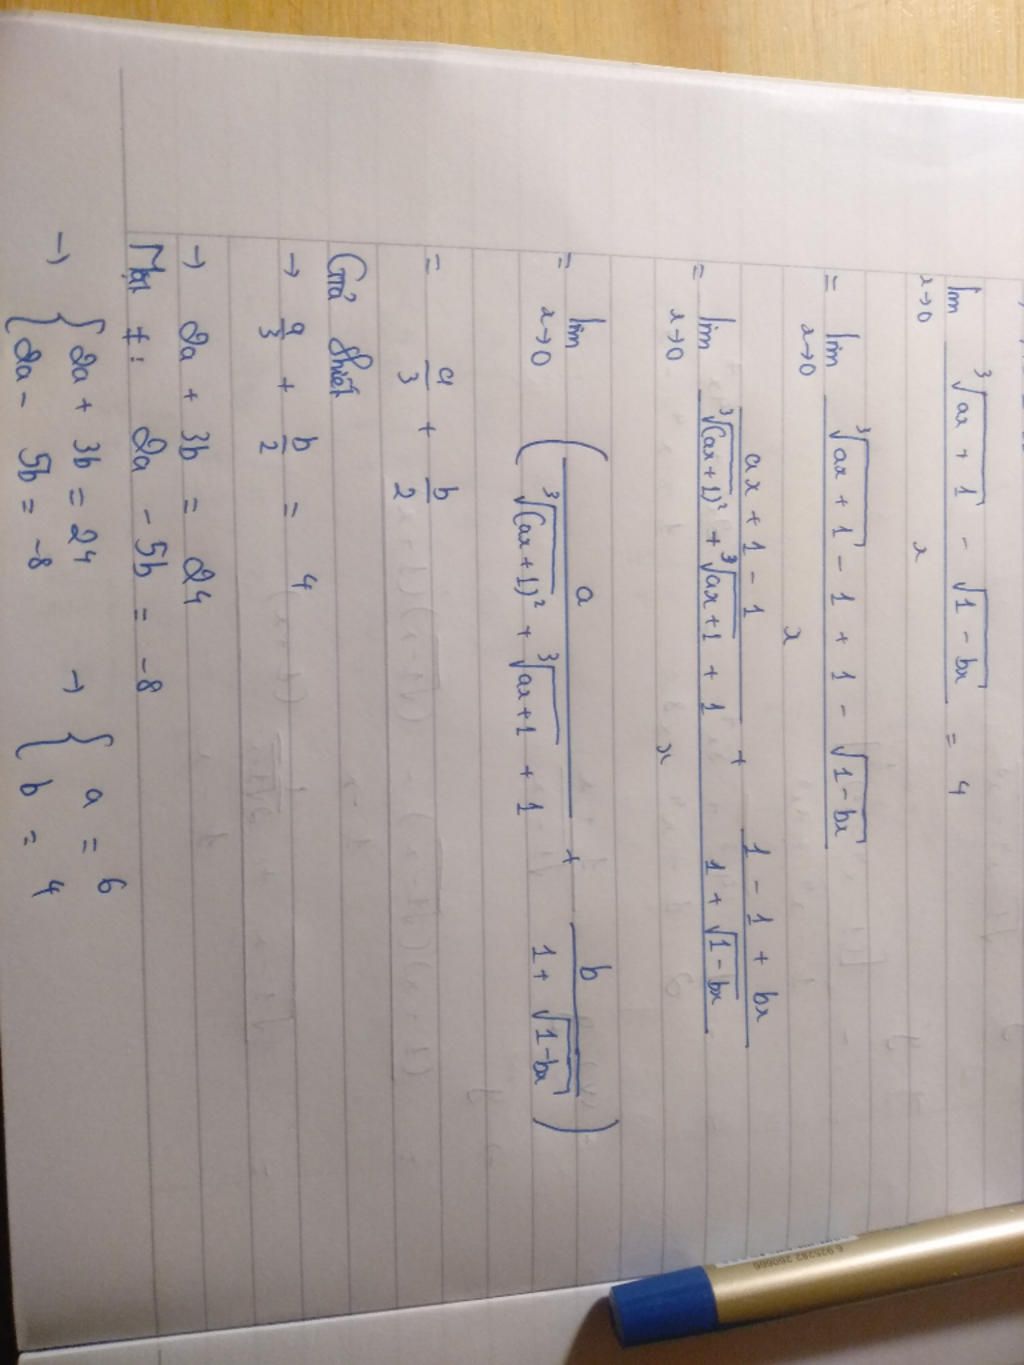 lim x→0 (∛(ax + 1) - √(1 - bx)) / x = 4
= lim x→0 (∛(ax + 1) - 1 + 1 - √(1 - bx)) / x
= lim x→0 ((ax + 1 - 1) / (∛(ax + 1)² + ∛(ax + 1) + 1) + (1 - 1 + bx) / (1 + √(1 - bx))) / x
= lim x→0 (a / (∛(ax + 1)² + ∛(ax + 1) + 1) + b / (1 + √(1 - bx)))
= a/3 + b/2
Giả thiết
→ a/3 + b/2 = 4
→ 2a + 3b = 24
Mặt ≠: 2a - 5b = -8
→ { 2a + 3b = 24 → { a = 6
2a - 5b = -8 b = 4
6 925282 260606